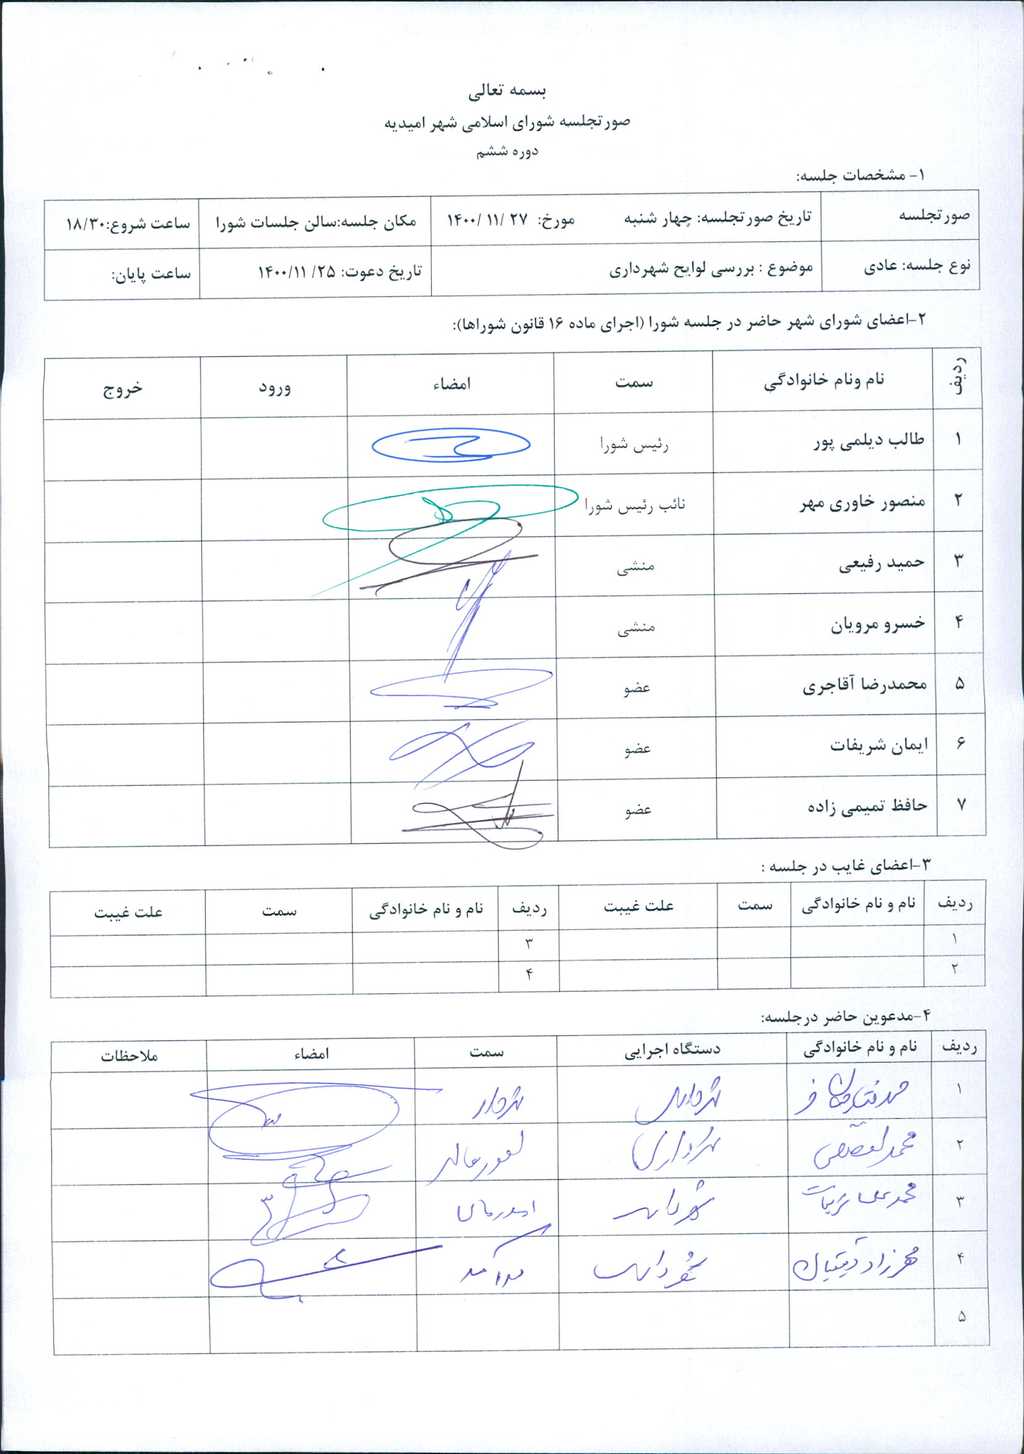 بسمه تعالی
صورتجلسه شورای اسلامی شهر امیدیه
دوره ششم
۱- مشخصات جلسه:
صورتجلسه تاریخ صورتجلسه: چهار شنبه مورخ: ۲۷ /۱۱ /۱۴۰۰ مکان جلسه:سالن جلسات شورا ساعت شروع:۱۸/۳۰
نوع جلسه: عادی موضوع : بررسی لوایح شهرداری تاریخ دعوت: ۲۵/ ۱۴۰۰/۱۱ ساعت پایان:
۲-اعضای شورای شهر حاضر در جلسه شورا (اجرای ماده ۱۶ قانون شوراها):
ردیف نام ونام خانوادگی سمت امضاء ورود خروج
۱ طالب دیلمی پور رئیس شورا
۲ منصور خاوری مهر نائب رئیس شورا
۳ حمید رفیعی منشی
۴ خسرو مرویان منشی
۵ محمدرضا آقاجری عضو
۶ ایمان شریفات عضو
۷ حافظ تمیمی زاده عضو
۳-اعضای غایب در جلسه :
ردیف نام و نام خانوادگی سمت علت غیبت ردیف نام و نام خانوادگی سمت علت غیبت
۱ ۳
۲ ۴
۴-مدعوین حاضر درجلسه:
ردیف نام و نام خانوادگی دستگاه اجرایی سمت امضاء ملاحظات
۱ شهرداری شهردار
۲ محمد شهرداری امور مالی
۳ محمد علی شریفات شهرداری
۴ شهرداری درآمد
۵